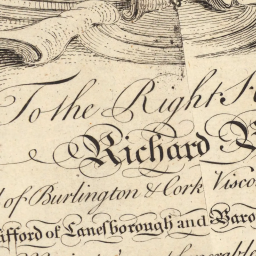 To the Right
Richard
of Burlington & Cork Visco
fford of Lanesborough and Baro